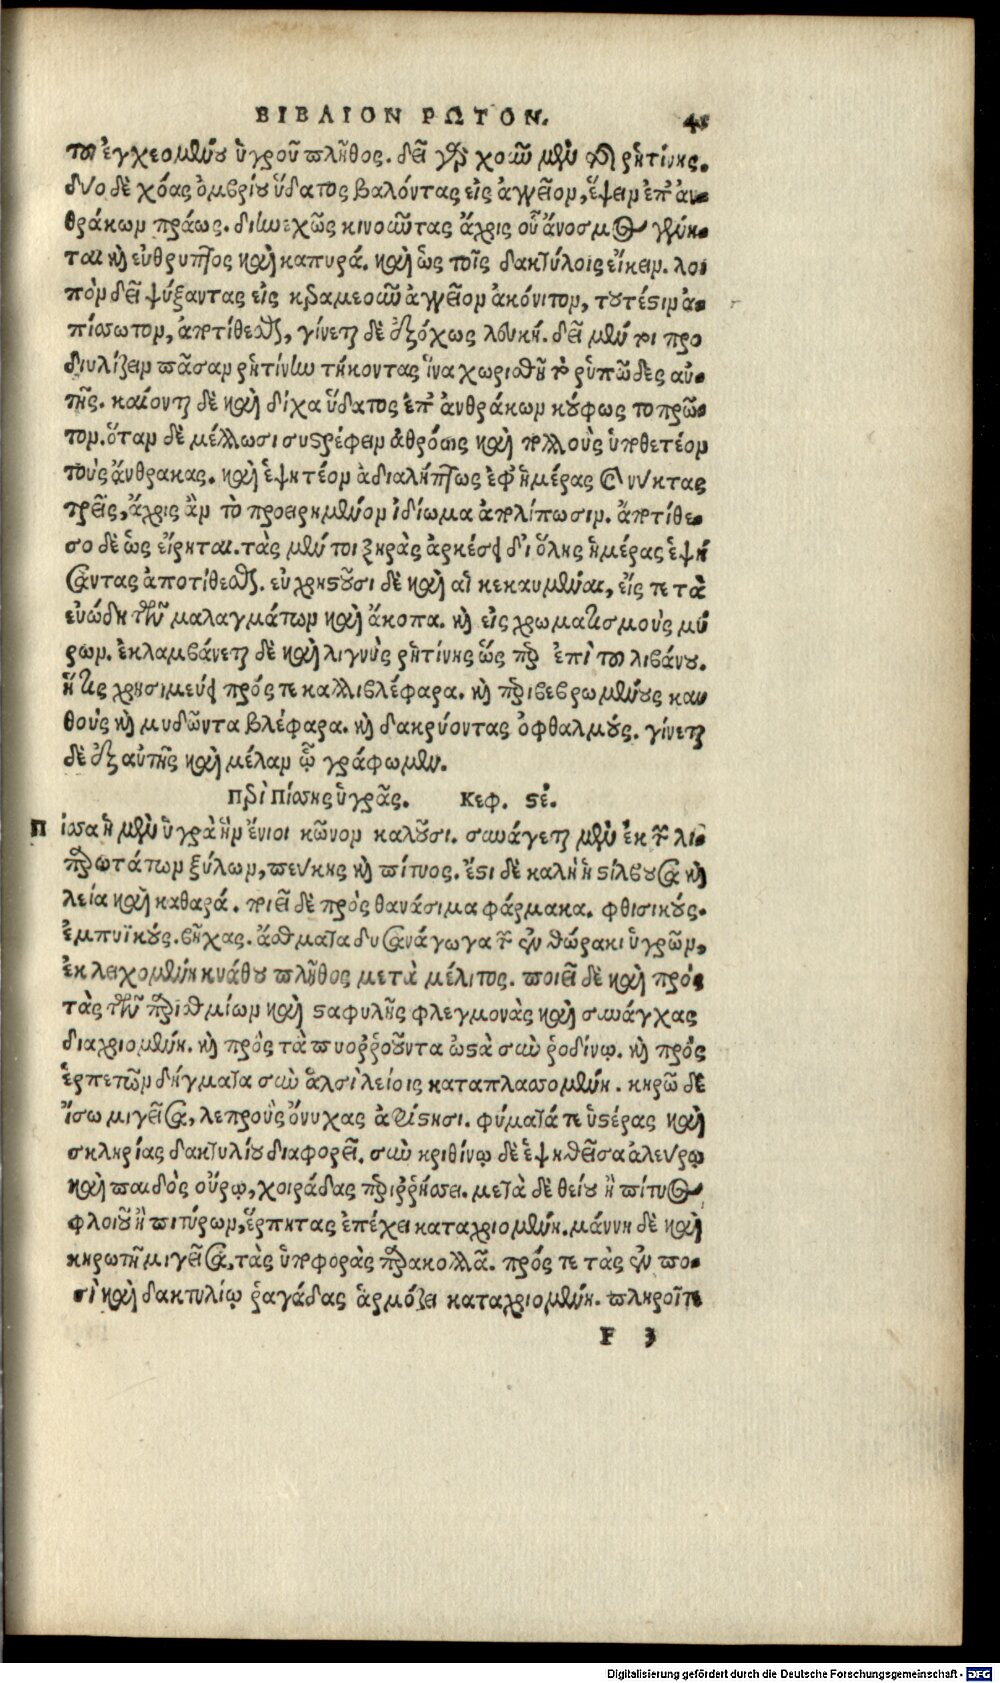 ΒΙΒΛΙΟΝ ΡΩΤΟΝ. 45
τοι ἐγχεομένου ὑγροῦ πλῆθος. δεῖ γὰρ χοῦν μὲν ῥητίνης.
δύο δὲ χόας ὀμβρίου ὕδατος βαλόντας εἰς ἀγγεῖον, ἕψειν ἐπ’ ἀν-
θράκων πράως. διηνεκῶς κινοῦντας ἄχρις οὗ ἄνοσμος γένων-
ται καὶ εὔθρυπτος καὶ καπυρά. καὶ ὡς τοῖς δακτύλοις εἴκειν. λοι
πὸν δεῖ ψύξαντας εἰς κεραμεοῦν ἀγγεῖον ἀκώνιτον, τουτέστιν ἀ-
πίσσωτον, ἀποτίθεσθαι, γίνεται δὲ ἐξόχως λευκή. δεῖ μέντοι προ
διυλίζειν πᾶσαν ῥητίνην τήκοντας ἵνα χωρισθῇ τὸ ῥυπῶδες αὐ-
τῆς. καίονται δὲ καὶ δίχα ὕδατος ἐπ’ ἀνθράκων κούφως τοπρῶ-
τον. ὅταν δὲ μέλλωσι συστρέφειν ἀθρόοις καὶ πολλοὺς ὑποθετέον
τοὺς ἄνθρακας. καὶ ἑψητέον ἀδιαλήπτως ἐφ’ ἡμέρας καὶ νύκτας
τρεῖς, ἄχρις ἂν τὸ προειρημένον ἰδίωμα ἀπολίπωσιν. ἀποτίθε-
σο δὲ ὡς εἴρηται. τὰς μέντοι ξηρὰς ἀρκέσει δι’ ὅλης ἡμέρας ἑψή
σαντας ἀποτίθεσθαι. εὐχρηστοῦσι δὲ καὶ αἱ κεκαυμέναι, εἴς τε τὰ
εὐώδη τῶν μαλαγμάτων καὶ ἄκοπα. καὶ εἰς χρωματισμοὺς μύ
ρων. ἐκλαμβάνεται δὲ καὶ λιγνὺς ῥητίνης ὥσπερ ἐπὶ τοῦ λιβάνου.
ἥτις χρησιμεύει πρός τε καλλιβλέφαρα. καὶ περιβεβρωμένους καν
θοὺς καὶ μυδῶντα βλέφαρα. καὶ δακρύοντας ὀφθαλμούς. γίνεται
δὲ ἐξ αὐτῆς καὶ μέλαν ᾧ γράφωμεν.
Περὶ Πίσσης ὑγρᾶς. Κεφ. ϛέ.
Πίσσα ἡ μὲν ὑγρὰ ἣν ἔνιοι κῶνον καλοῦσι. συνάγεται μὲν ἐκ τῶν λι-
παρωτάτων ξύλων, πεύκης καὶ πίτυος. ἔστι δὲ καλὴ ἡ στίλβουσα καὶ
λεία καὶ καθαρά. ποιεῖ δὲ πρὸς θανάσιμα φάρμακα. φθισικούς.
ἐμπυϊκούς. βῆχας. ἄσθματα δυσανάγωγα τῶν ἐν θώρακι ὑγρῶν,
ἐκλειχομένη κυάθου πλῆθος μετὰ μέλιτος. ποιεῖ δὲ καὶ πρὸς
τὰς τῶν παρισθμίων καὶ σταφυλῆς φλεγμονὰς καὶ συνάγχας
διαχριομένη. καὶ πρὸς τὰ πυορροῦντα ὦτα σὺν ῥοδίνῳ. καὶ πρὸς
ἑρπετῶν δήγματα σὺν ἁλσὶ λείοις καταπλασσομένη. κηρῶ δὲ
ἴσω μιγεῖσα, λεπροὺς ὄνυχας ἀφίστησι. φύματά τε ὑστέρας καὶ
σκληρίας δακτυλίου διαφορεῖ. σὺν κριθίνῳ δὲ ἑψηθεῖσα ἀλεύρῳ
καὶ παιδὸς οὔρῳ, χοιράδας περιρρήσσει. μετὰ δὲ θείου ἢ πίτυος
φλοιοῦ ἢ πιτύρων, ἕρπητας ἐπέχει καταχριομένη. μάννη δὲ καὶ
κηρωτῇ μιγεῖσα, τὰς ὑποφορὰς παρακολλᾷ. πρός τε τὰς ἐν πο-
σὶ καὶ δακτυλίῳ ῥαγάδας ἁρμόζει καταχριομένη. πληροῖ τε
F 3
Digitalisierung gefördert durch die Deutsche Forschungsgemeinschaft - DFG